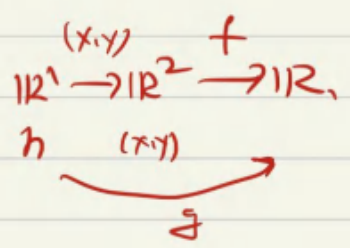 (x,y) f
ℝ¹ → ℝ² → ℝ,
h (x,y)
g